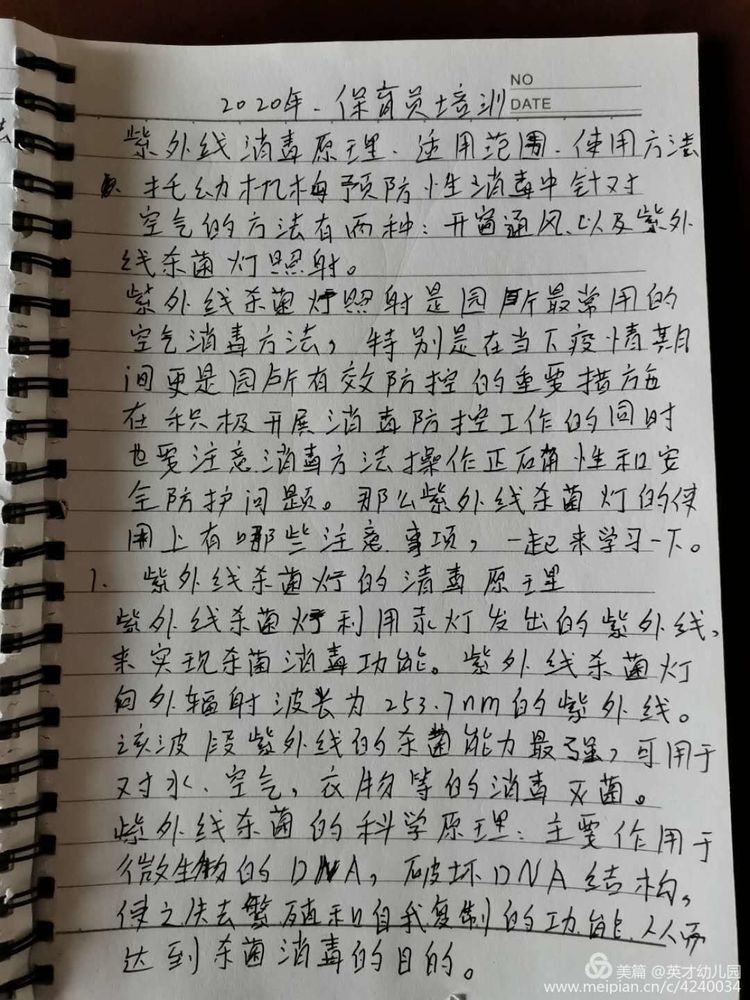 NO
2020年.保育员培训 DATE
紫外线消毒原理.适用范围.使用方法
托幼机构预防性消毒中针对
空气的方法有两种：开窗通风.以及紫外
线杀菌灯照射。
紫外线杀菌灯照射是园所最常用的
空气消毒方法，特别是在当下疫情期
间更是园所有效防控的重要措施
在积极开展消毒防控工作的同时
也要注意消毒方法操作正确性和安
全防护问题。那么紫外线杀菌灯的使
用上有哪些注意事项，一起来学习一下。
1. 紫外线杀菌灯的消毒原理
紫外线杀菌灯利用汞灯发出的紫外线，
来实现杀菌消毒功能。紫外线杀菌灯
向外辐射波长为253.7nm的紫外线。
该波段紫外线的杀菌能力最强，可用于
对水.空气，衣物等的消毒灭菌。
紫外线杀菌的科学原理：主要作用于
微生物的DNA，破坏DNA结构，
使之失去繁殖和自我复制的功能.从而
达到杀菌消毒的目的。
美篇 @英才幼儿园
www.meipian.cn/c/4240034